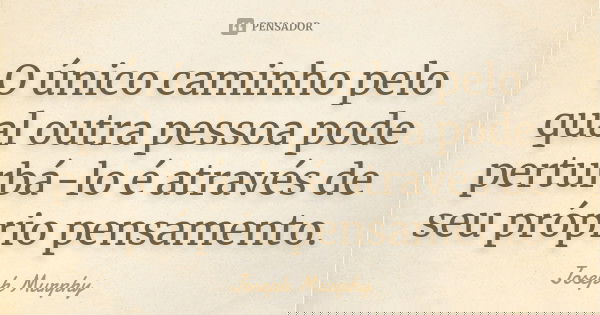 PENSADOR
O único caminho pelo
qual outra pessoa pode
perturbá-lo é através de
seu próprio pensamento.
Joseph Murphy